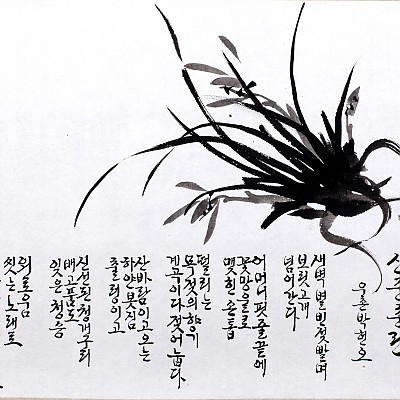 산중춘란
우촌 박현오
새벽 별빛 젖빨며
보릿고개
넘어간다
어머니 핏줄 끝에
꽃망울로
맺힌 손톱
떨리는
무젖의 향기
계곡이다 젖어눕다
산바람 이고 오는
하얀 봇짐
출렁이고
신선된 청개구리
배고픔도
잊은 청음
외로움
씻는 노래로